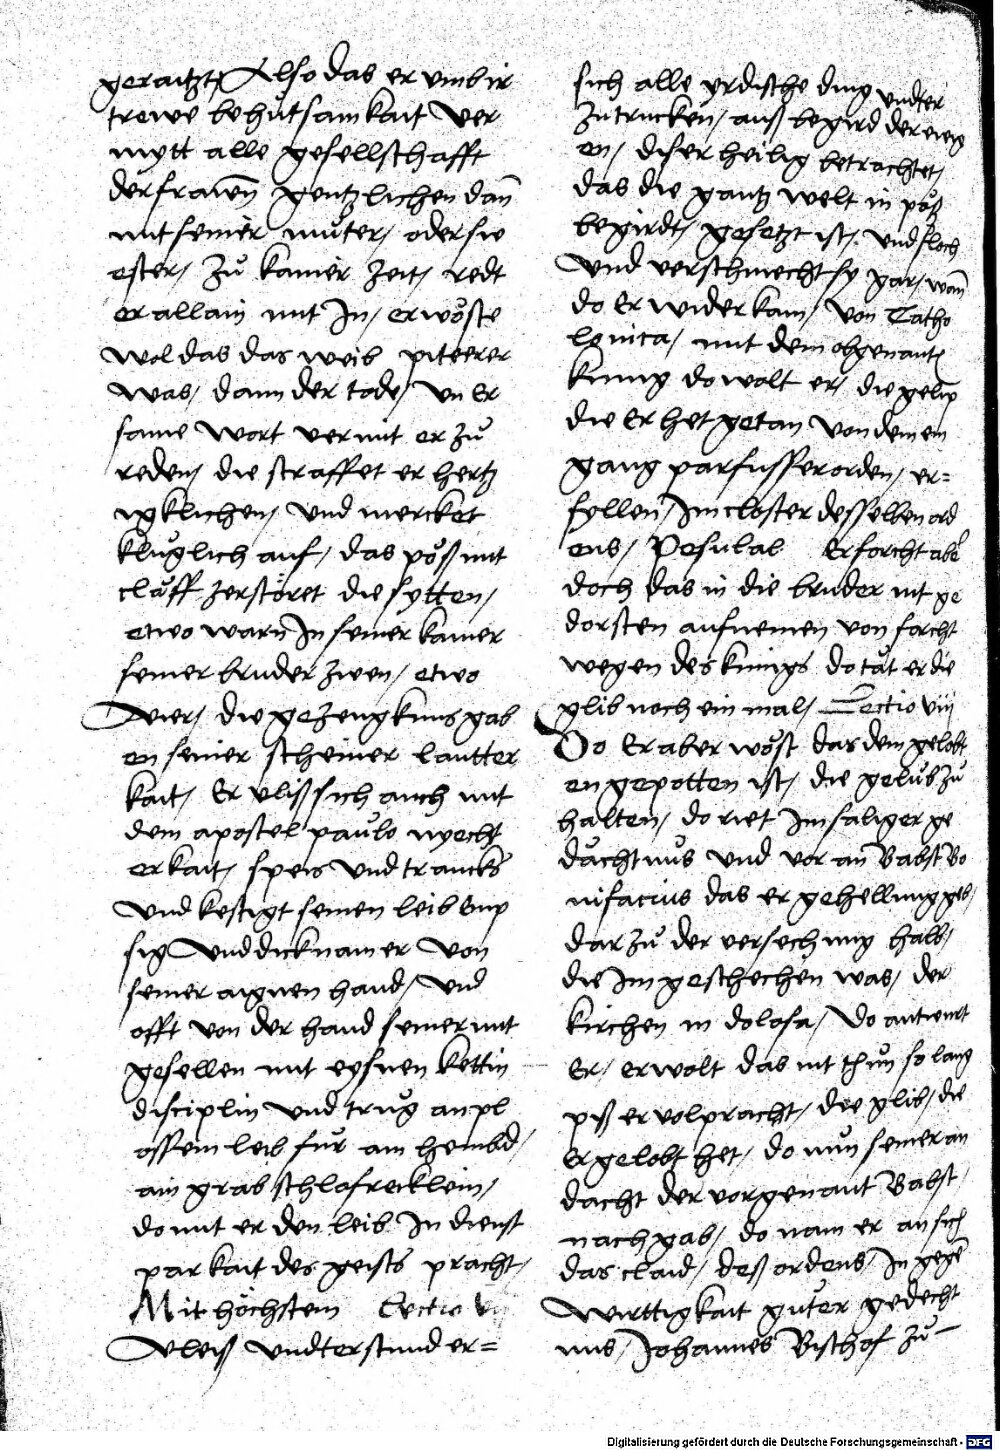 geraitzt/ Also das er umb ir
trewe behutsamkait ver
mytt alle gesellschafft
der frawen gentzlichen dan̄
mit seiner muͦter/ oder sw
ester/ Zuͦ kainer Zeit/ redt
er allain mit In/ er wöste
wol das das weib pitterer
was/ dann der tode/ vn Er
same wort vermit er zuͦ
reden/ die straffet er hertz
igklichen/ Und mercket
kluͦglich auf/ das pöß mit
claͤff Zerstöret die sytten/
etwo warn In seiner kamer
seiner bruder zwen/ etwo
vier/ die gezengknus gab
en seiner scheiner lautter
kait/ Er vliß sich auch mit
dem apostel paulo nyecht
erkait/ speis Und trancks
Und kestigt seinen leib Emp
sig Und dick nam er Von
seiner aignen hand/ Und
offt von der hand seiner mit
gesellen mit eysnen kettin
disciplin Und truͦg an pl
ossem leib für am hembd/
ain grab schlofrecklein/
do mit er den leib In dienst
parkait des geists pracht/
Mit höchstem Lectio V
Vleiß Undterstund er=
sich alle yrdische ding undter
Zutrucken/ auß begird der ewig
en/ diser heilig betrachtet/
das die gantz welt in pöß
begirdt/ gesetzt ist/ Und floch
Und verschmecht sy gar/ wan̄
do Er wider kam/ Von Catho
lonica/ mit dem obgenantē
kunig do wolt er/ die gelüp
die Er het getan Von dem ein
gang parfusser orden/ er=
fyllen/ Im closter desselben ord
ens/ Pesulal Er forcht aber
doch das in die bruder nit ge
dorsten aufnemen von forcht
wegen des kunigs do taͤt er die
glib noch ein mal/ Lectio viij
Do Er aber wöst das dem gelobt
en gepotten ist/ die gelüb zuͦ
halten/ do riet Im säliger ge
dächtnus Und vor an Babst Bo
nifacius das er gehellung geb/
dar zuͦ der versechung halb/
die Im geschechen was/ der
kirchen in dolosa/ Do antwurt
Er/ er wolt das nit thuͦn so lang
piß er volpracht/ die glib/ die
Er gelobt het/ do nun seiner an
dacht der vorgenant Babst
nach gab/ do nam er an sich
das claid/ deß ordens/ In gegē
wirttigkait guͦter gedecht
nus/ Johannes Bischof zuͦ